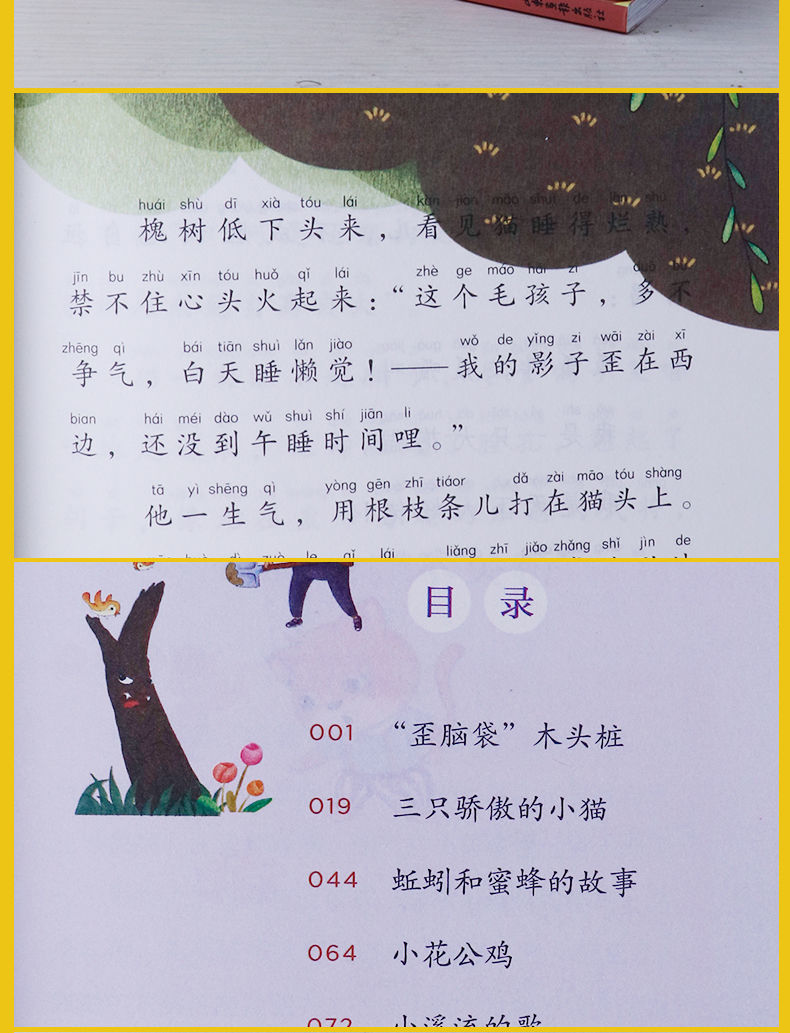 东画报出版社
huái shù dī xià tóu lái kàn jiàn māo shuì de làn shú
槐树低下头来，看见猫睡得烂熟，
jīn bu zhù xīn tóu huǒ qǐ lái zhè ge máo hái zi duō bù
禁不住心头火起来：“这个毛孩子，多不
zhēng qì bái tiān shuì lǎn jiào wǒ de yǐng zi wāi zài xī
争气，白天睡懒觉！——我的影子歪在西
bian hái méi dào wǔ shuì shí jiān li
边，还没到午睡时间哩。”
tā yì shēng qì yòng gēn zhī tiáor dǎ zài māo tóu shàng
他一生气，用根枝条儿打在猫头上。
le qǐ lái liǎng zhī jiǎo zhǎng shǐ jìn de
目录
001 “歪脑袋”木头桩
019 三只骄傲的小猫
044 蚯蚓和蜜蜂的故事
064 小花公鸡
072 小溪流的歌